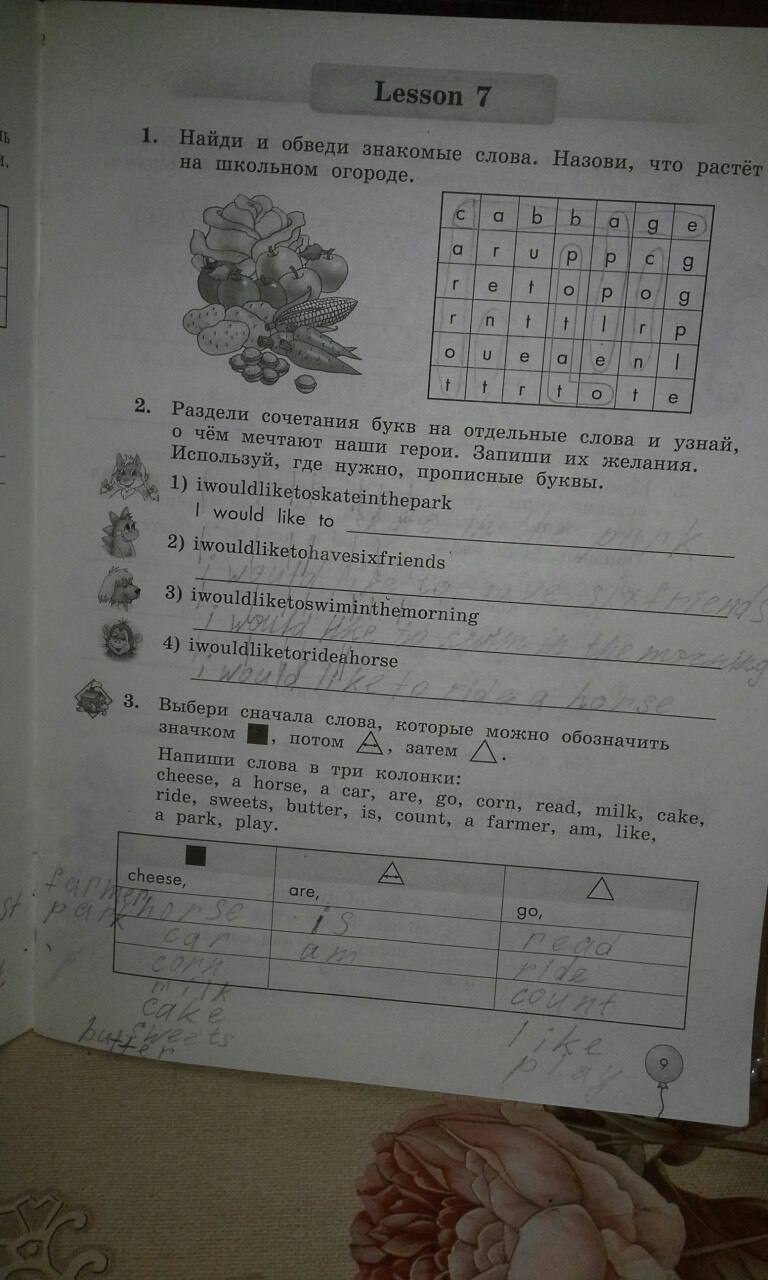 Lesson 7
1. Найди и обведи знакомые слова. Назови, что растёт
на школьном огороде.
c a b b a g e
a r u p p c g
r e t o p o g
r n t t l r p
o u e a e n l
t t r t o t e
2. Раздели сочетания букв на отдельные слова и узнай,
о чём мечтают наши герои. Запиши их желания.
Используй, где нужно, прописные буквы.
1) iwouldliketoskateinthepark
I would like to in the park
2) iwouldliketohavesixfriends
i would like to have six friends
3) iwouldliketoswiminthemorning
i would like to swim in the morning
4) iwouldliketorideahorse
i would like to ride a horse
3. Выбери сначала слова, которые можно обозначить
значком , потом , затем .
Напиши слова в три колонки:
cheese, a horse, a car, are, go, corn, read, milk, cake,
ride, sweets, butter, is, count, a farmer, am, like,
a park, play.
cheese, are, go,
farmer
park horse is read
car am ride
corn count
milk
cake like
sweets play
butter
9